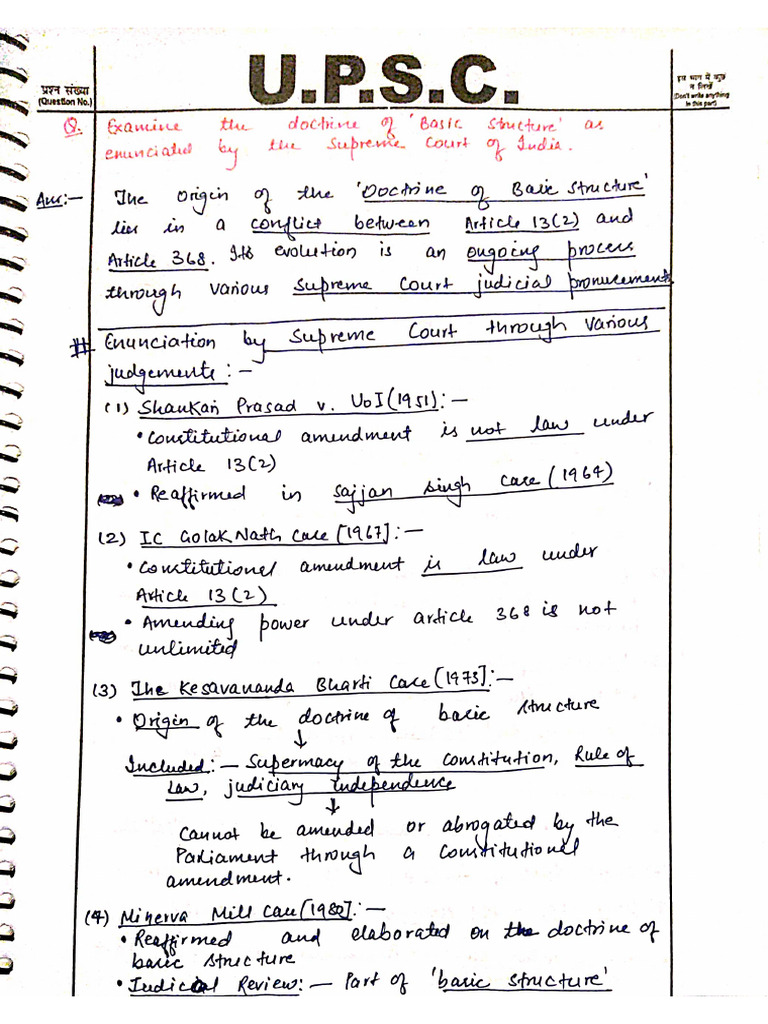 U.P.S.C.
प्रश्न संख्या
(Question No.)
इस भाग में कुछ
न लिखें
(Don't write anything
in this part)
Q. Examine the doctrine of 'Basic structure' as
enunciated by the Supreme Court of India.
Ans:- The origin of the 'Doctrine of Basic structure'
lies in a conflict between Article 13(2) and
Article 368. Its evolution is an ongoing process
through various Supreme Court judicial pronucements
# Enunciation by Supreme Court through various
judgements:-
(1) Shankari Prasad v. UoI (1951):-
• Constitutional amendment is not law under
Article 13(2)
• Reaffirmed in Sajjan Singh Case (1964)
(2) IC Golak Nath Case [1967]:-
• Constitutional amendment is law under
Article 13(2)
• Amending power under article 368 is not
unlimited
(3) The Kesavananda Bharti Case [1973]:-
• Origin of the doctrine of basic structure
↓
Included:- Supermacy of the constitution, Rule of
Law, judiciary independence
↓
Cannot be amended or abrogated by the
Parliament through a Constitutional
amendment.
(4) Minerva Mill Case [1980]:-
• Reaffirmed and elaborated on the doctrine of
basic structure
• Judicial Review:- Part of 'basic structure'